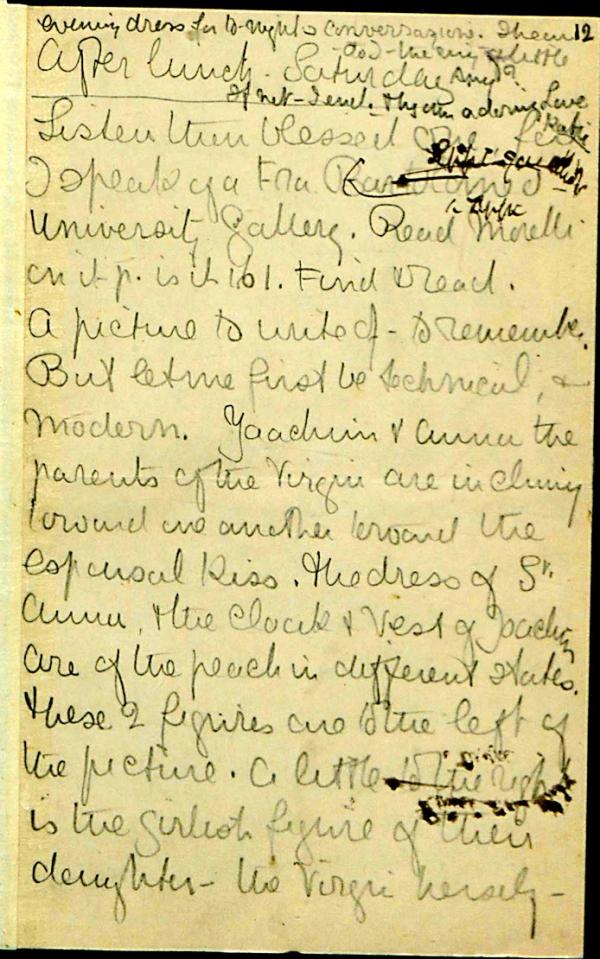 evening dress for to-night's conversazione. I hear 12
After lunch. Saturday
If not - I
Love
Listen then blessed One for
I speak of a Fra
University Gallery. Read Morelli
on it p. is it 161. Find & read.
A picture to write of - to remember.
But let me first be technical, &
modern. Joachim & Anna the
parents of the Virgin are inclining
toward one another toward the
espousal kiss. The dress of St.
Anna, & the cloak & vest of Joachim
are of the peach in different states.
These 2 figures are to the left of
the picture. A little to the right
is the girlish figure of their
daughter - the Virgin herself -